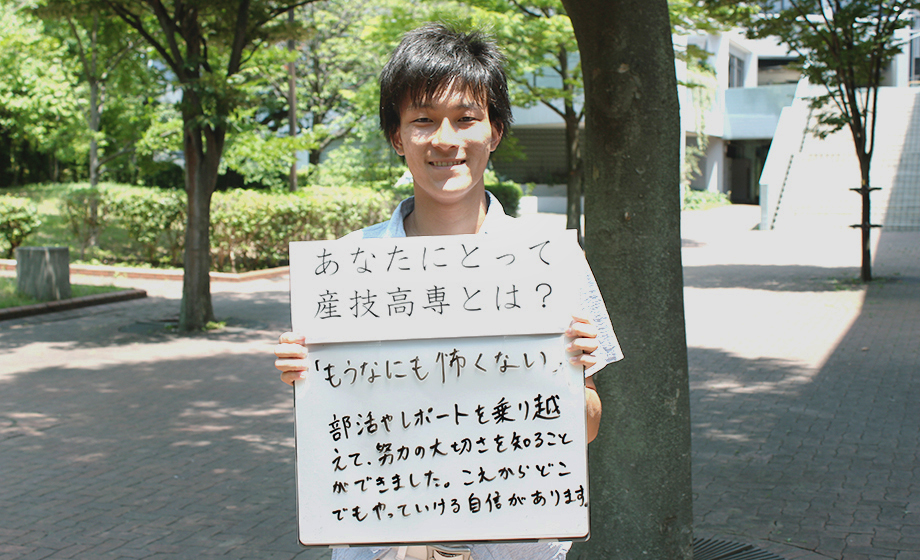 あなたにとって
産技高専とは？
「もうなにも怖くない」
部活やレポートを乗り越
えて、努力の大切さを知ること
ができました。これからどこ
でもやっていける自信があります。